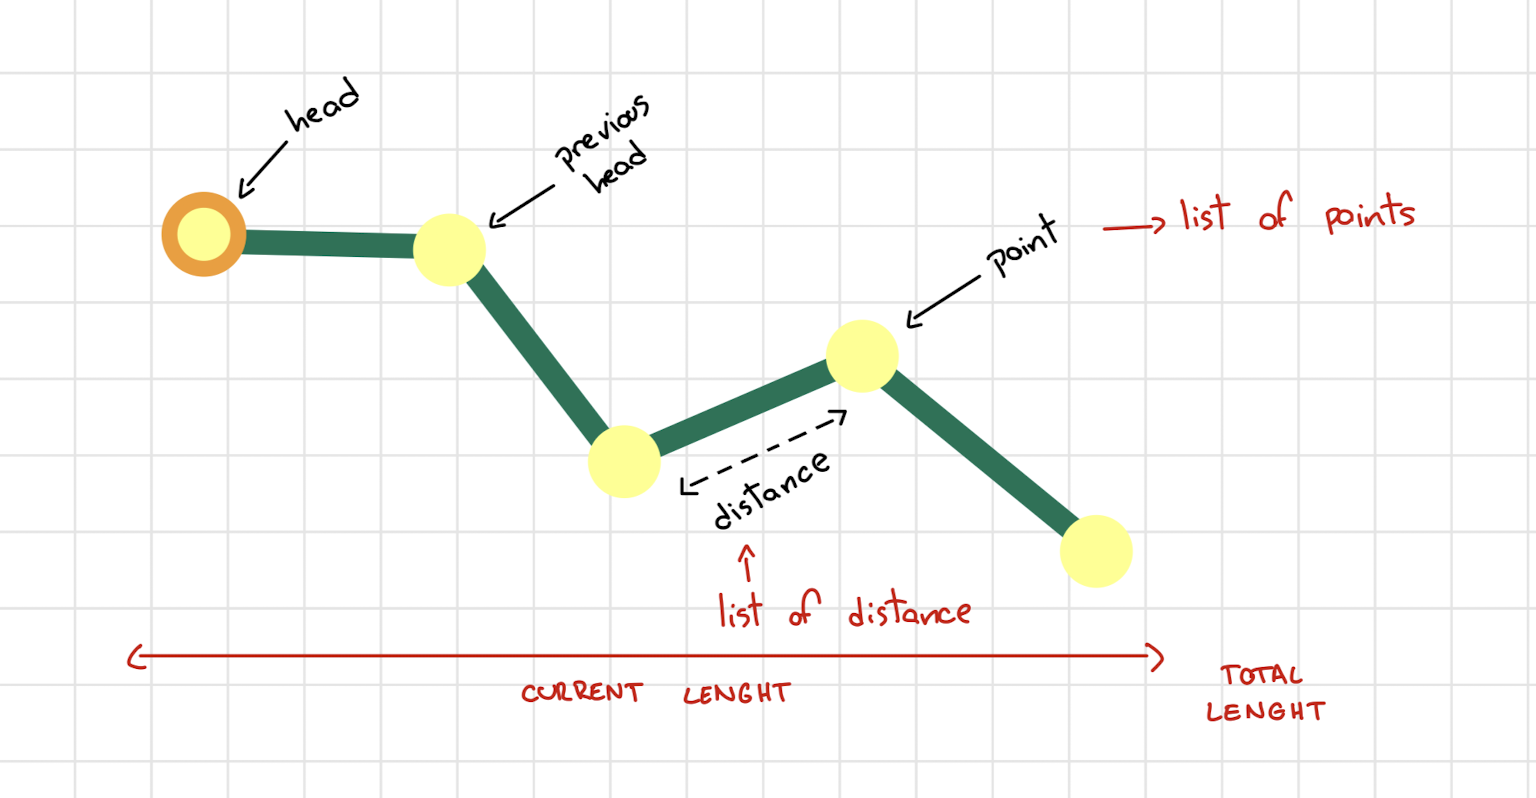 head
previous
head
point
list of points
distance
list of distance
CURRENT LENGHT
TOTAL
LENGHT